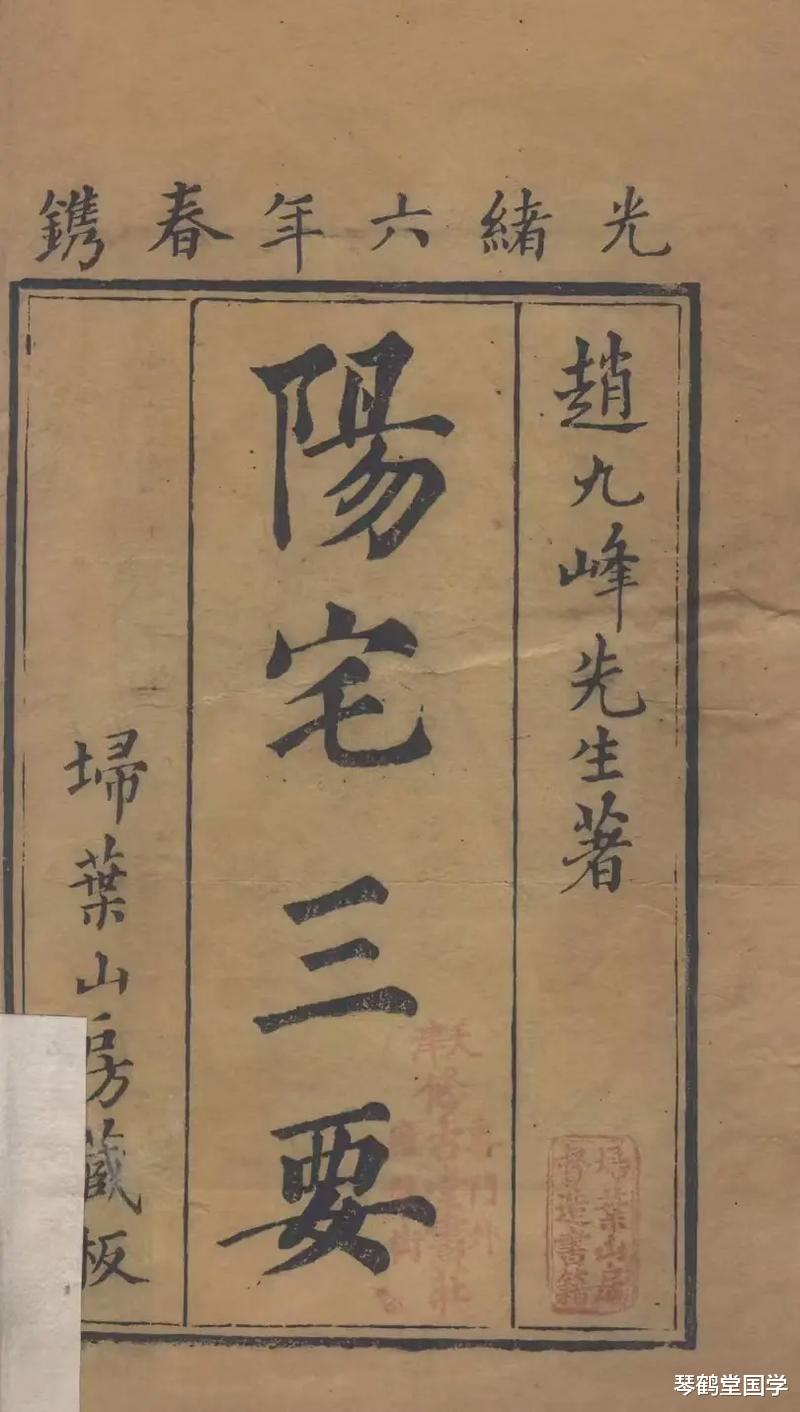 光緒六年春鐫
趙九峰先生著
陽宅三要
埽葉山房藏板
埽葉山房
督造書籍
天津
修古堂書莊
門外
琴鹤堂国学